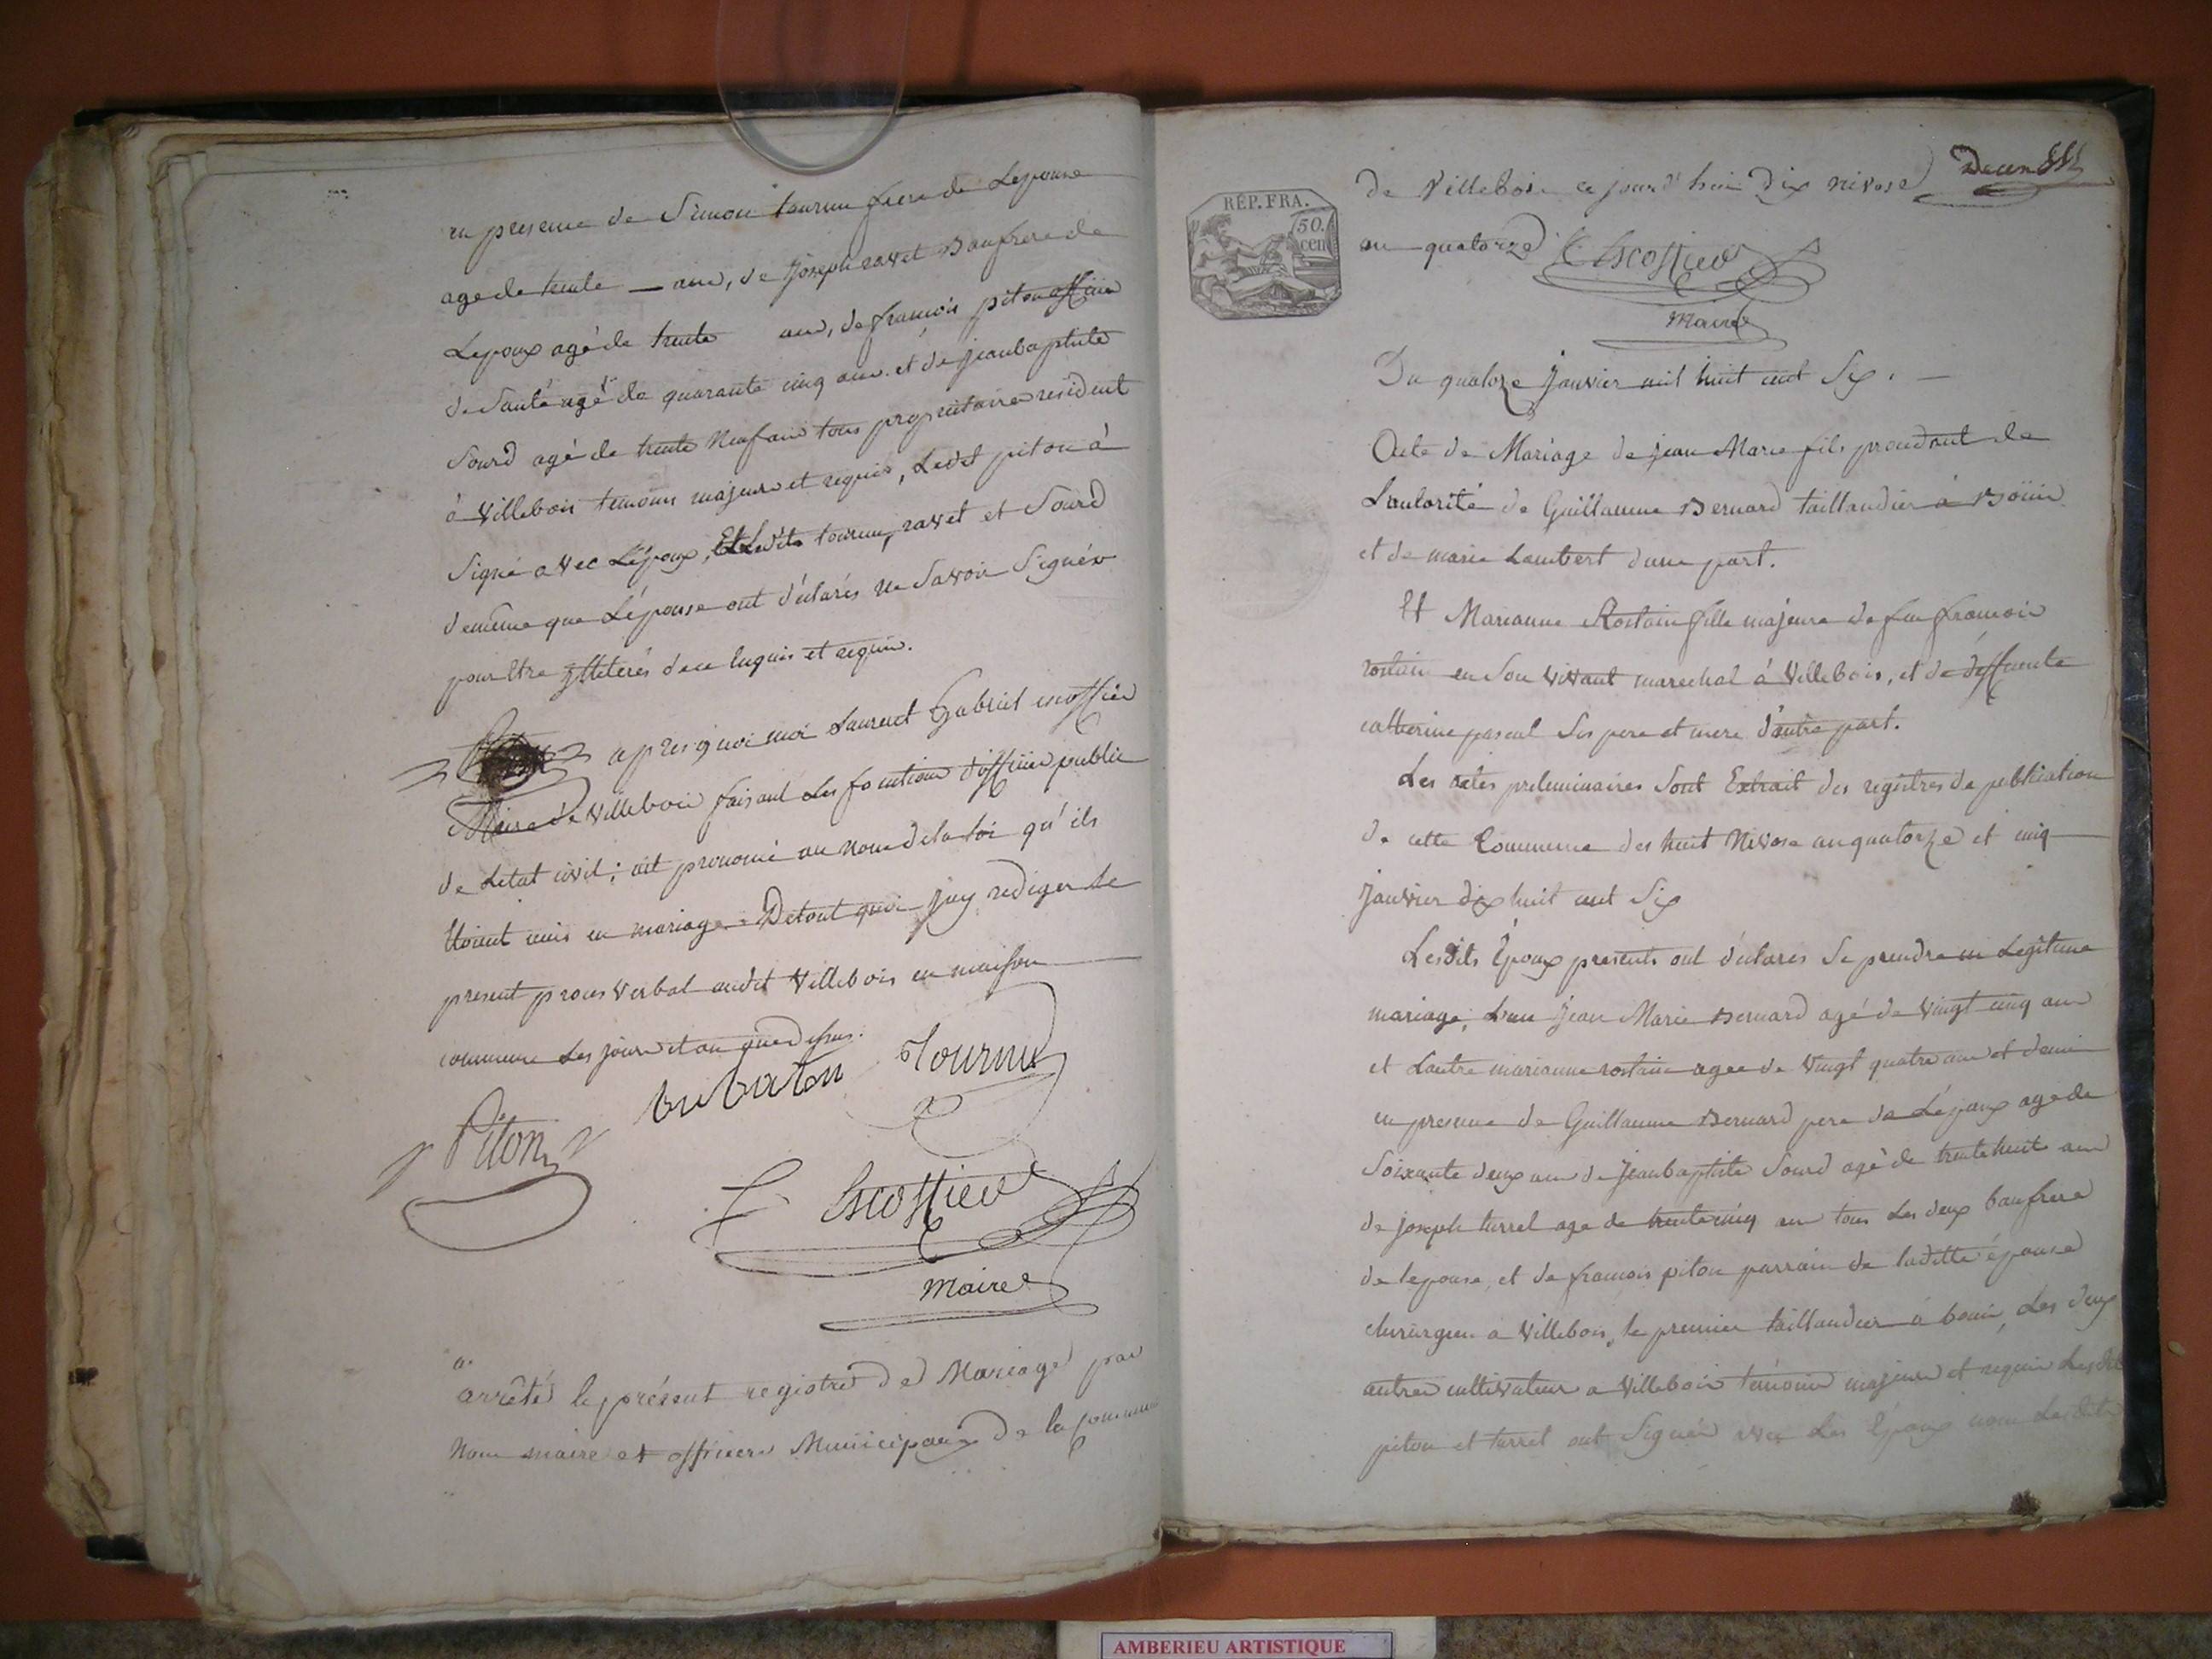 en presence de Simon tournu frere de Lepouse
agé de trente — ans, de Joseph ravet Baufrere de
Lepoux agé de trente ans, de francois piton officier
de Santé agé de quarante cinq ans et de jeanbaptiste
Sourd agé de trente Neuf ans tous proprietaires resident
à Villebois temoins majeurs et requis, Ledit piton à
Signé avec L'époux, Et Ledits tournu, ravet et Sourd
demême que L'épouse ont déclarés ne Savoir Signér
pour Etre jlleterés de ce Enquis et requis.
apres quoi moi Laurent Gabriel escoffier
Maire de Villebois faisant Les fonctions d'officier public
de Letat civil; ait prononcé au nom de la loi qu'ils
Etoient unis en mariage. De tout quoi jay rediger le
present proces Verbal audit Villebois en maison
commune Les jour et an que dessus.
Piton dubaton Tournu
Escoffier
Maire
arrêté le présent registre de Mariage par
Nous maire et officiers Municipaux de la Commune
RÉP. FRA.
50.
cen
de Villebois ce jourd'hui Dix nivose
an quatorze Escoffier
Maire
Du quatorze Janvier mil huit cent Six. —
Acte de Mariage de jean Marie fils procedant de
L'autorité de Guillaume Bernard taillandier à Boüis
et de marie Lambert d'une part.
Et Marianne Rostain fille majeure de feu francois
rostain en Son vivant marechal à Villebois, et de deffunte
catherine pascal Ses pere et mere d'autre part.
Les actes preliminaires Sont Extrait des registres de publication
de cette Commune des huit Nivose an quatorze et cinq
janvier dix huit cent Six
Lesdits Époux presents ont déclarés Se prendre en Legitime
mariage, L'un Jean Marie Bernard agé de Vingt cinq ans
et Lautre marianne rostain agee de Vingt quatre ans et demi
en presence de Guillaume Bernard pere de Lépoux agé de
Soixante deux ans de Jeanbaptiste Sourd agé de trente huit ans
de joseph turrel age de trente cinq ans tous Les deux baufrere
de lepouse, et de francois piton parrain de laditte épouse
chirurgien a Villebois, le premier taillandier à bouis, Les deux
autres cultivateurs a Villebois témoins majeurs et requis Lesdits
piton et turrel ont Signés avec Les Époux non Lesdits
AMBERIEU ARTISTIQUE